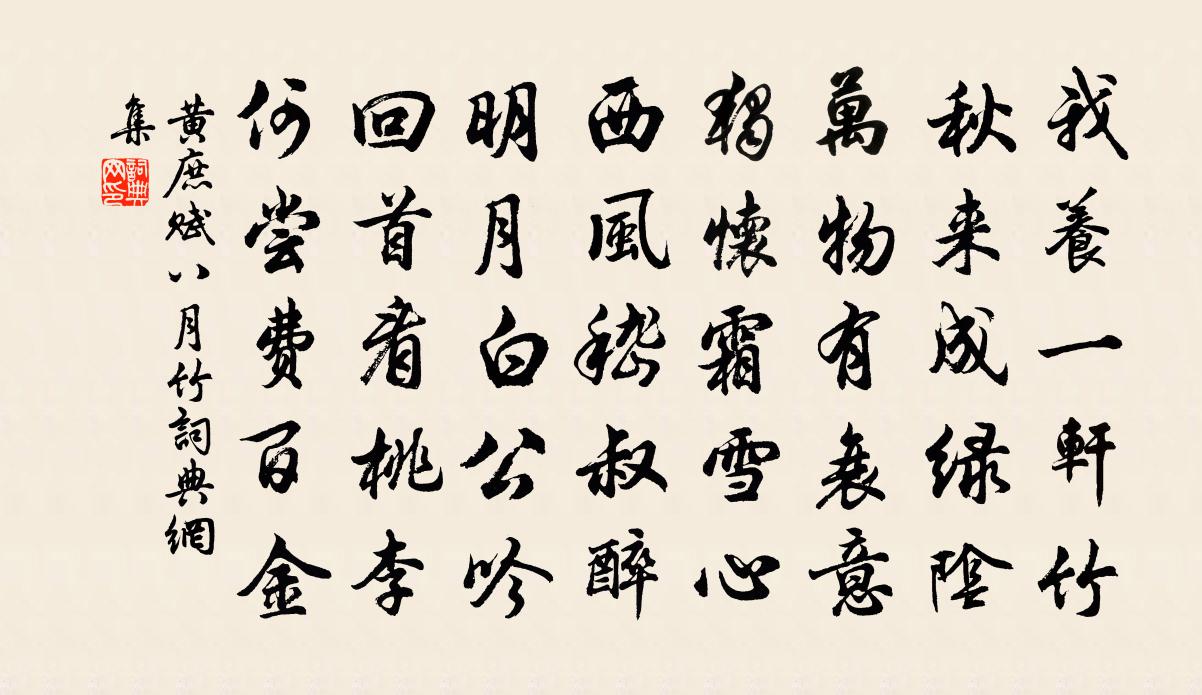 我養一軒竹
秋来成緑陰
萬物有衰意
獨懷霜雪心
西風嵇叔醉
明月白公吟
回首看桃李
何嘗费百金
黄庶赋八月竹詞典網
集
詞典網印